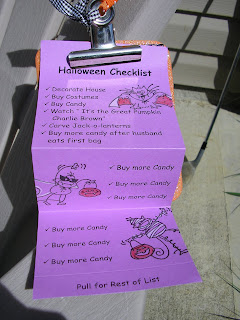 Halloween Checklist
✓ Decorate House
✓ Buy Costumes
✓ Buy Candy
✓ Watch "It's the Great Pumpkin
Charlie Brown"
✓ Carve Jack-o-lanterns
✓ Buy more candy after husband
eats first bag
✓ Buy more Candy
✓ Buy more Candy
✓ Buy more Candy
✓ Buy more Candy
✓ Buy more Candy
✓ Buy more Candy
Pull for Rest of List